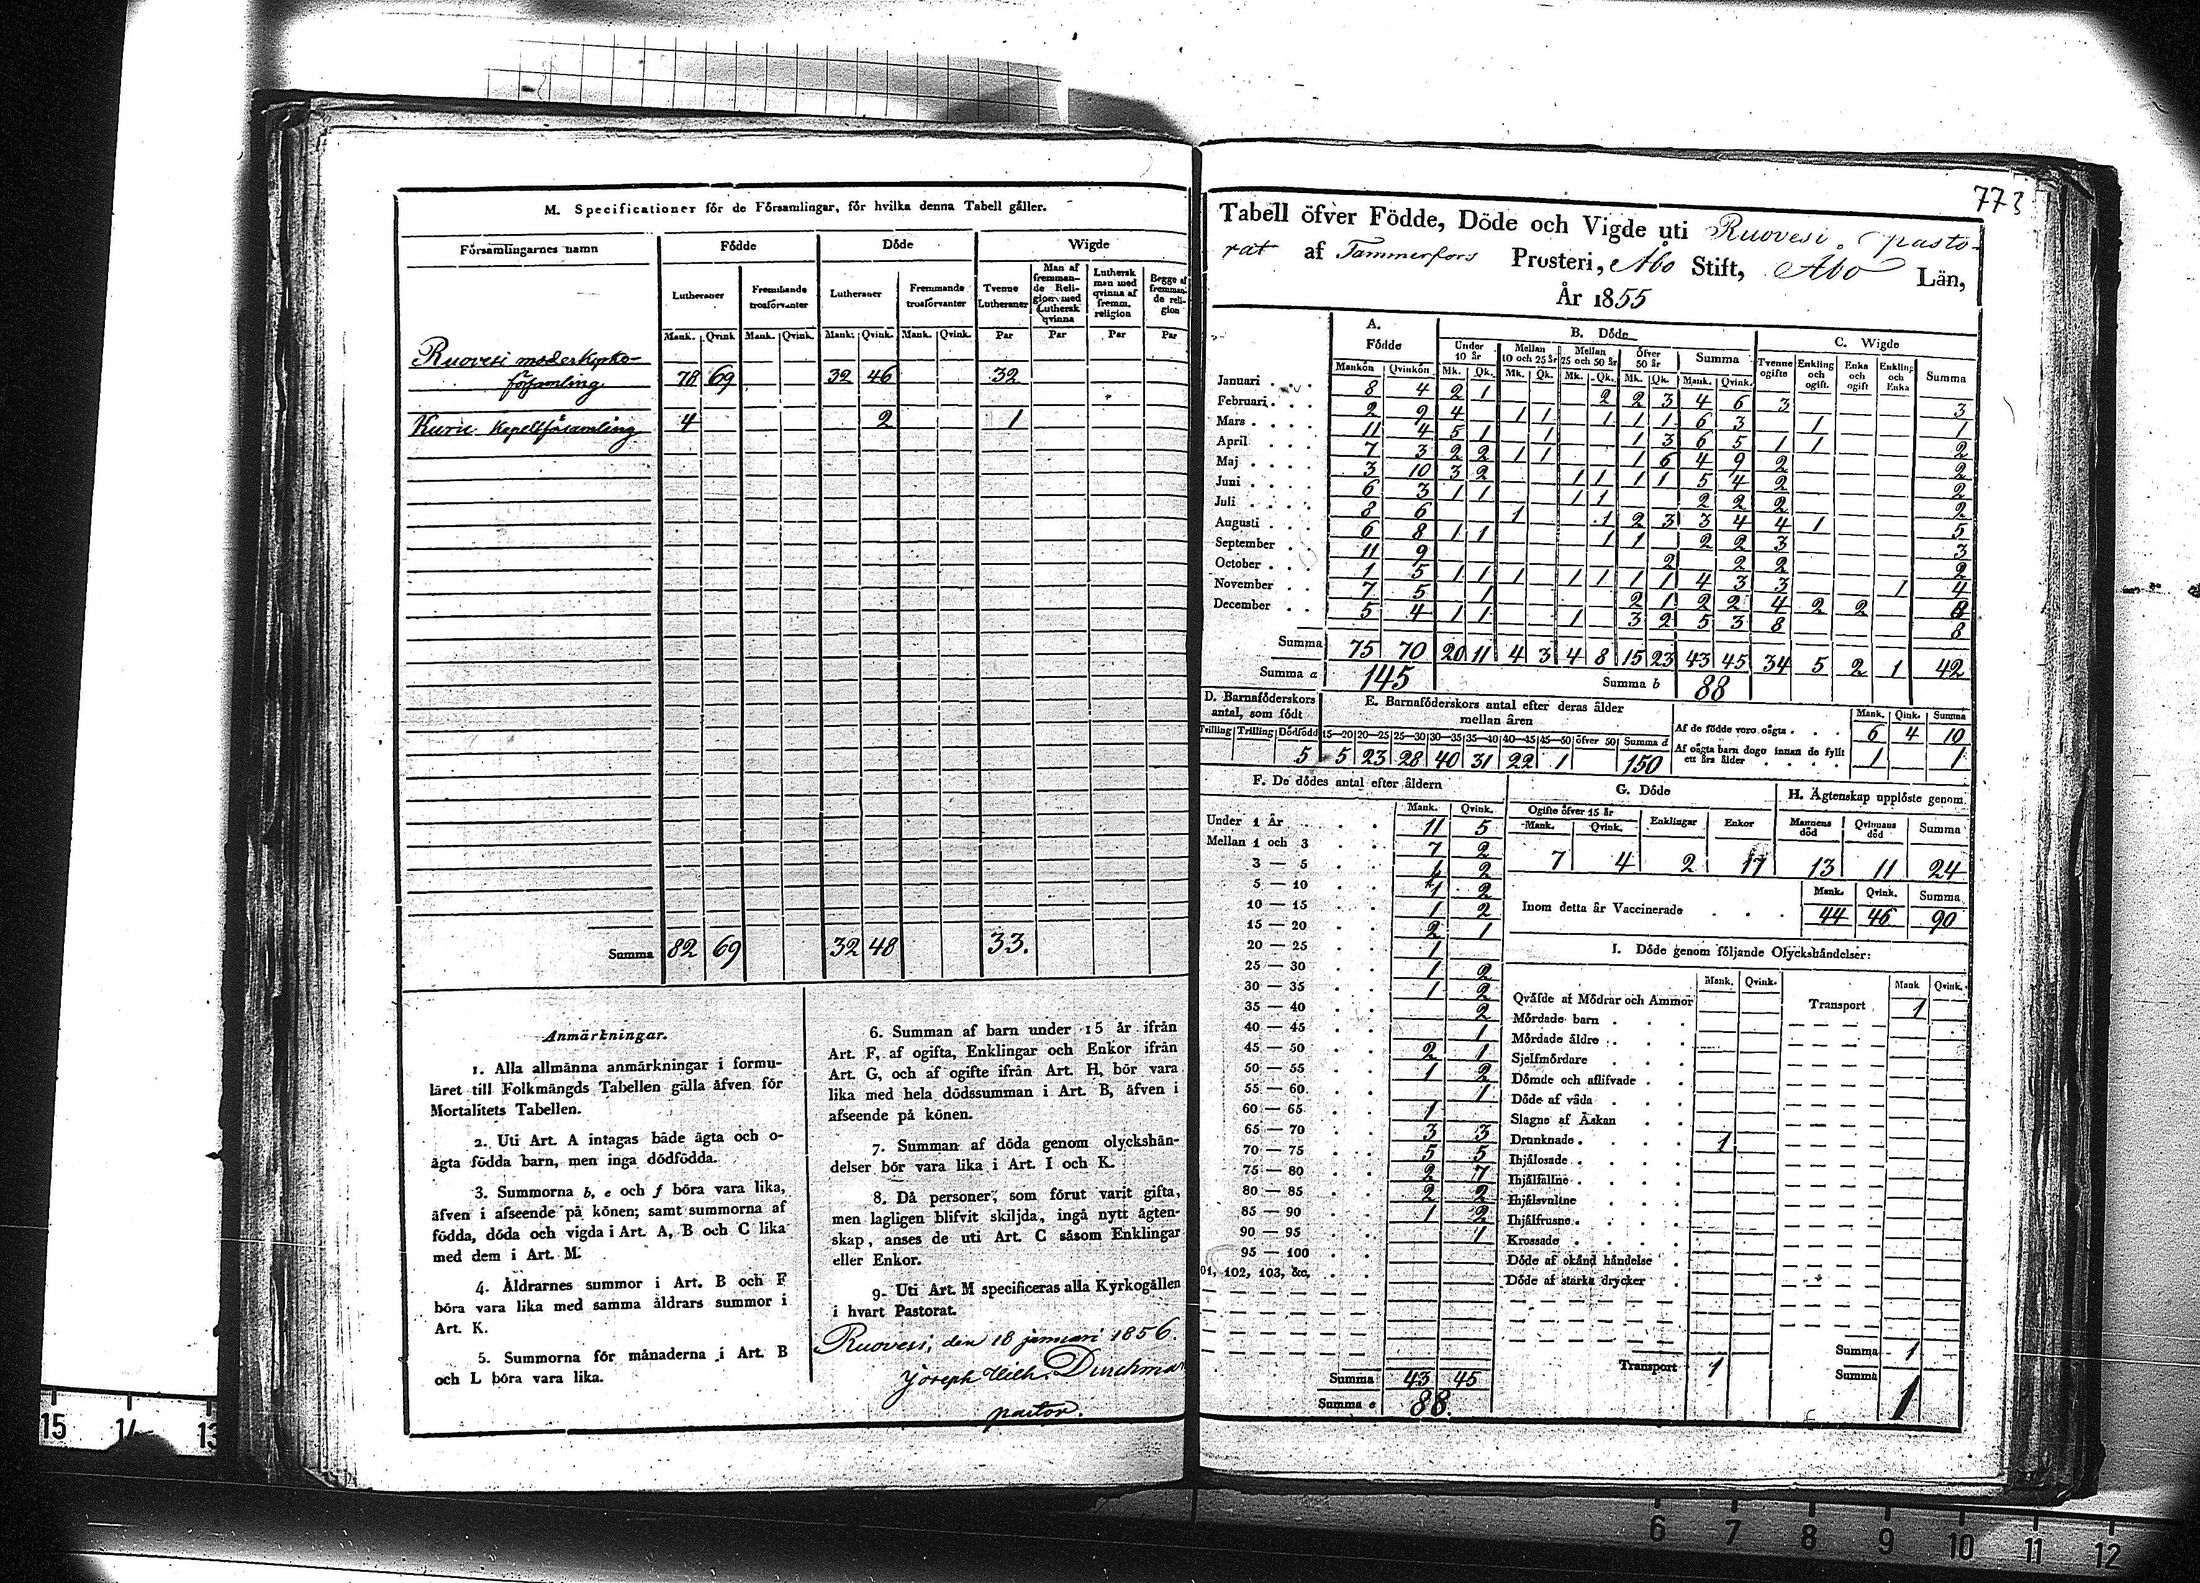 M. Specificationer för de Församlingar, för hvilka denna Tabell gäller.
Församlingarnes namn | Födde | Döde | Wigde
Lutheraner | Fremmande trosförvanter | Lutheraner | Fremmande trosförvanter | Tvenne Lutheraner | Man af fremmande Religion med Luthersk qvinna | Luthersk man med qvinna af fremm. religion | Begge af fremmande religion
Mank. | Qvink. | Mank. | Qvink. | Mank. | Qvink. | Mank. | Qvink. | Par | Par | Par | Par
Ruovesi moderkyrko-
församling 78 69 32 46 32
Kuru Kapellförsamling 4 2 1
Summa 82 69 32 48 33.
Anmärkningar.
1. Alla allmänna anmärkningar i formu-
läret till Folkmängds Tabellen gälla äfven för
Mortalitets Tabellen.
2. Uti Art. A intagas både ägta och o-
ägta födda barn, men inga dödfödda.
3. Summorna b, e och f böra vara lika,
äfven i afseende på könen; samt summorna af
födda, döda och vigda i Art. A, B och C lika
med dem i Art. M.
4. Åldrarnes summor i Art. B och F
böra vara lika med samma åldrars summor i
Art. K.
5. Summorna för månaderna i Art. B
och L böra vara lika.
6. Summan af barn under 15 år ifrån
Art. F, af ogifta, Enklingar och Enkor ifrån
Art. G, och af ogifte ifrån Art. H, bör vara
lika med hela dödssumman i Art. B, äfven i
afseende på könen.
7. Summan af döda genom olyckshän-
delser bör vara lika i Art. I och K.
8. Då personer, som förut varit gifta,
men lagligen blifvit skiljda, ingå nytt ägten-
skap, anses de uti Art. C såsom Enklingar
eller Enkor.
9. Uti Art. M specificeras alla Kyrkogällen
i hvart Pastorat.
Ruovesi, den 18 januari 1856.
Joseph Wilh. Durchman
pastor.
773
Tabell öfver Födde, Döde och Vigde uti Ruovesi pasto-
rat af Tammerfors Prosteri, Åbo Stift, Åbo Län,
År 1855
A. Födde | B. Döde | C. Wigde
Under 10 år | Mellan 10 och 25 år | Mellan 25 och 50 år | Öfver 50 år | Summa | Tvenne ogifte | Enkling och ogift. | Enka och ogift | Enkling och Enka | Summa
Mankön | Qvinkön | Mk. | Qk. | Mk. | Qk. | Mk. | Qk. | Mk. | Qk. | Mank. | Qvink.
Januari 8 4 2 1 2 2 3 4 6 3 3
Februari 2 9 4 1 1 1 1 1 6 3 1 1
Mars 11 4 5 1 1 1 3 6 5 1 1 2
April 7 3 2 2 1 1 1 6 4 9 2 2
Maj 3 10 3 2 1 1 1 1 5 4 2 2
Juni 6 3 1 1 1 1 2 2 2 2
Juli 8 6 1 1 2 3 3 4 4 1 5
Augusti 6 8 1 1 1 1 2 2 3 3
September 11 9 2 2 2 2
October 1 5 1 1 1 1 1 1 1 4 3 3 1 4
November 7 5 1 2 1 2 2 4 2 2 8
December 5 4 1 1 1 3 2 5 3 8 8
Summa 75 70 20 11 4 3 4 8 15 23 43 45 34 5 2 1 42
Summa a 145 Summa b 88
D. Barnaföderskors antal, som födt
Tvilling | Trilling | Dödfödd
5
E. Barnaföderskors antal efter deras ålder mellan åren
15—20 | 20—25 | 25—30 | 30—35 | 35—40 | 40—45 | 45—50 | öfver 50 | Summa d
5 23 28 40 31 22 1 150
Mank. | Qink. | Summa
Af de födde voro oägta 6 4 10
Af oägta barn dogo innan de fyllt
ett års ålder 1 1
F. De dödes antal efter åldern
Mank. | Qvink.
Under 1 År 11 5
Mellan 1 och 3 7 2
3 — 5 2
5 — 10 1 2
10 — 15 1 2
15 — 20 2 1
20 — 25 1
25 — 30 1 2
30 — 35 1 2
35 — 40 2
40 — 45 1
45 — 50 2 1
50 — 55 1 2
55 — 60 1
60 — 65 1
65 — 70 3 3
70 — 75 5 5
75 — 80 2 7
80 — 85 2 2
85 — 90 1 2
90 — 95 1
95 — 100
01, 102, 103, &c.
Summa 43 45
Summa e 88.
G. Döde
Ogifte öfver 15 år | Enklingar | Enkor
Mank. | Qvink.
7 4 2 17
H. Ägtenskap upplöste genom
Mannens död | Qvinnans död | Summa
13 11 24
Mank. | Qvink. | Summa
Inom detta år Vaccinerade 44 46 90
I. Döde genom följande Olyckshändelser:
Mank. | Qvink. | Mank | Qvink.
Qväfde af Mödrar och Ammor
Transport 1
Mördade barn
Mördade äldre
Sjelfmördare
Dömde och aflifvade
Döde af våda
Slagne af Åskan
Drunknade 1
Ihjälosade
Ihjälfallne
Ihjälsvultne
Ihjälfrusne
Krossade
Döde af okänd händelse
Döde af starka drycker
Transport 1
Summa 1
Summa 1
15 14 13
6 7 8 9 10 11 12